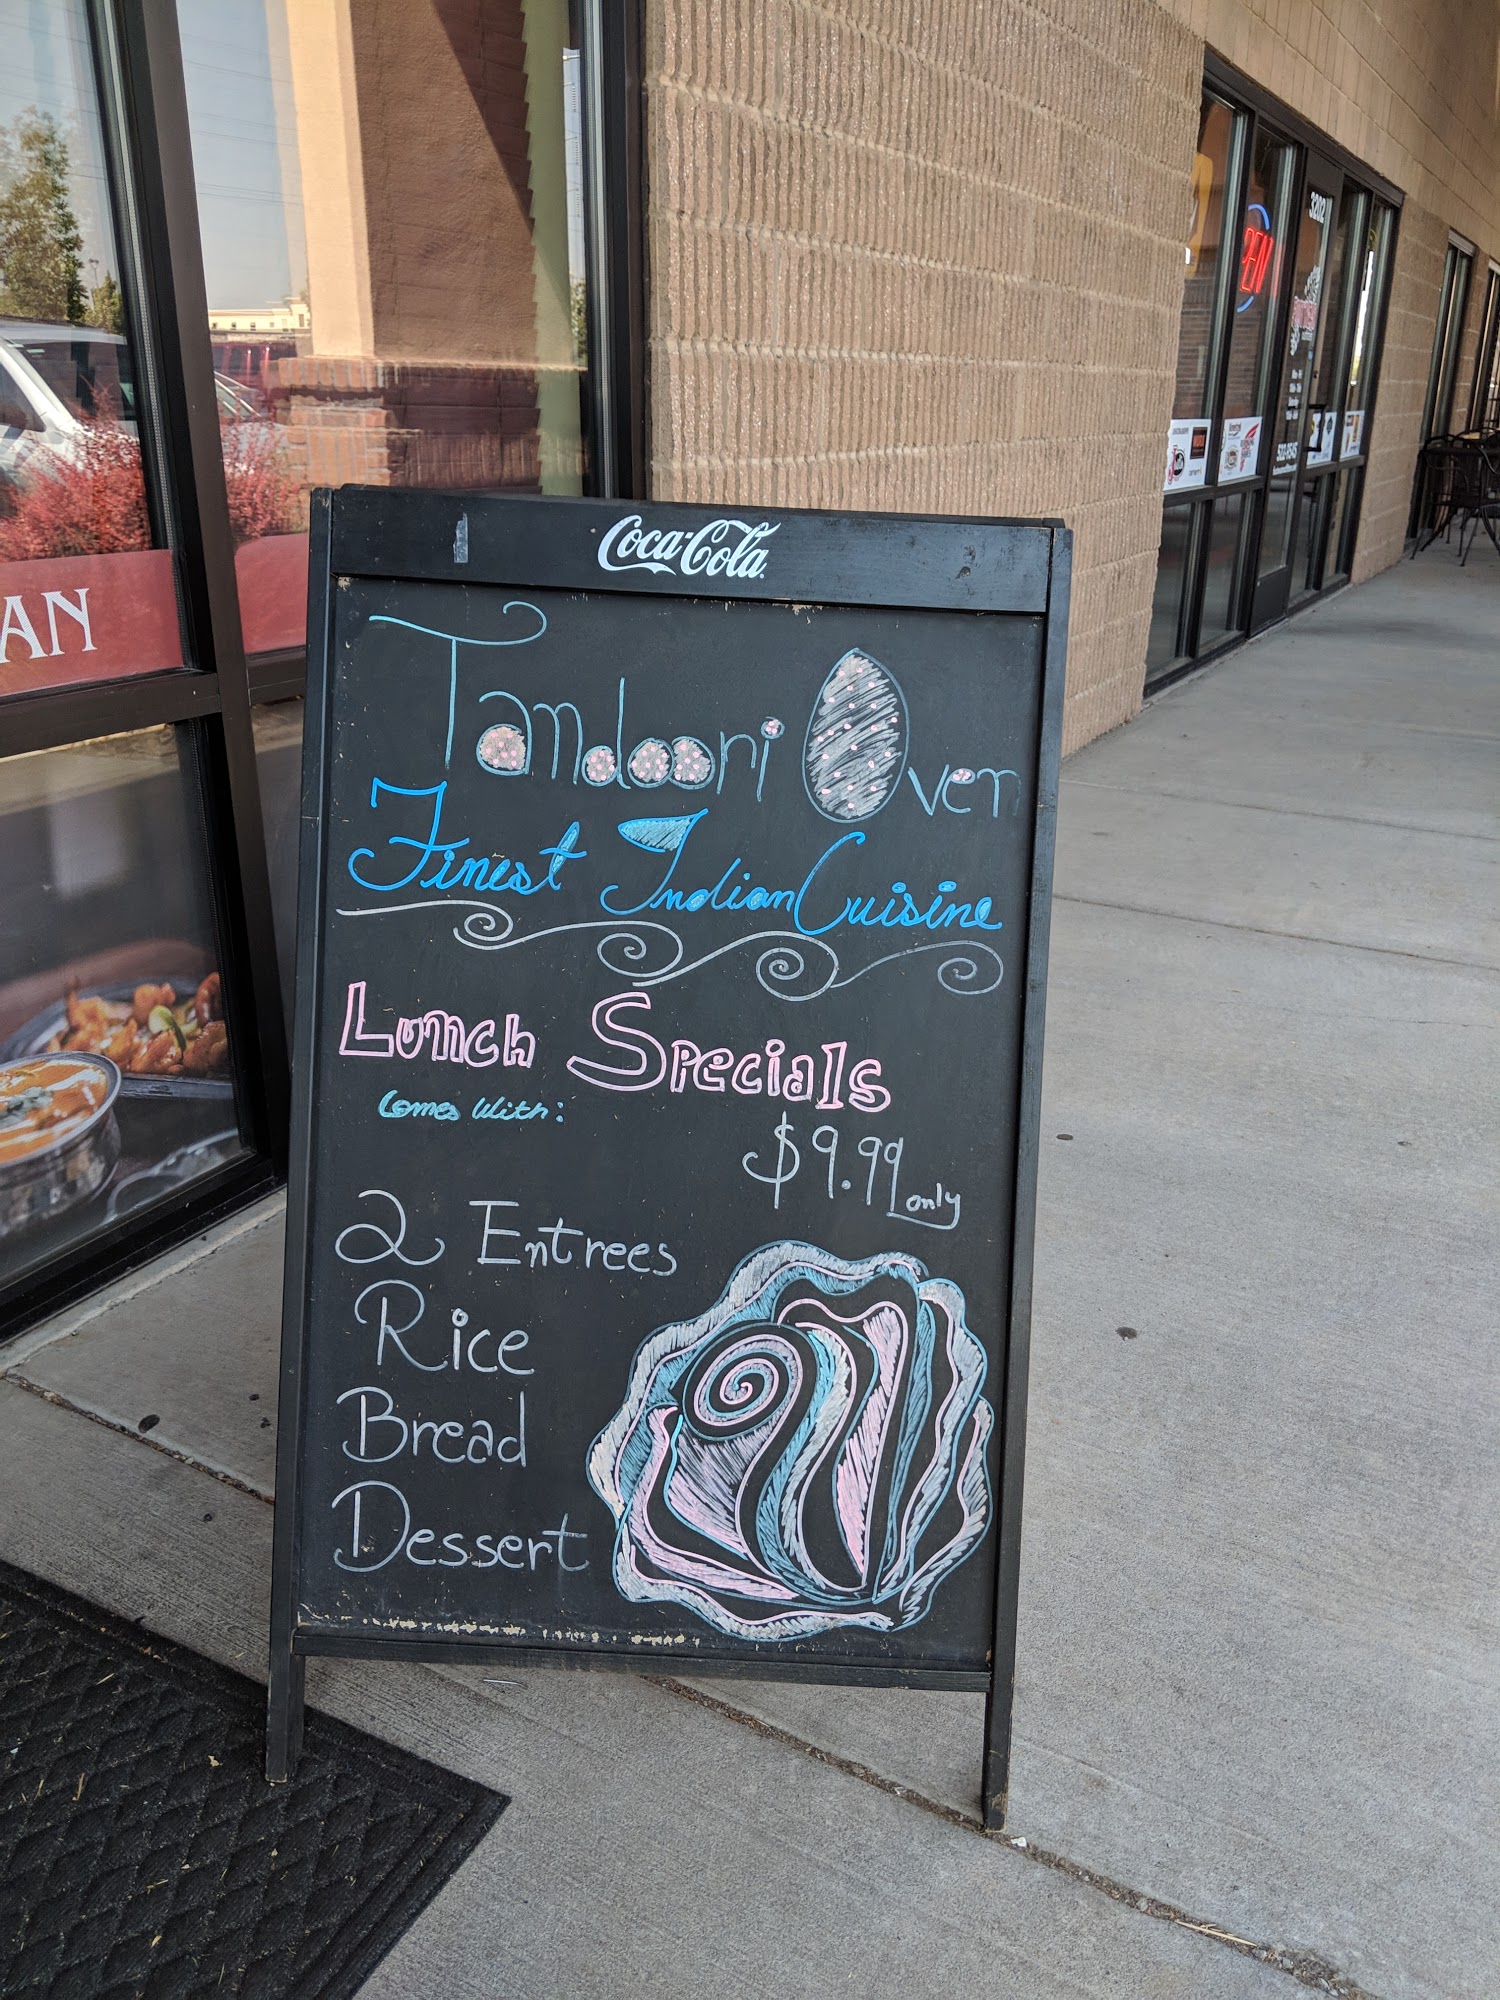 Coca-Cola
Tandoori Oven
Finest Indian Cuisine
Lunch Specials
Comes With:
$9.99 only
2 Entrees
Rice
Bread
Dessert
AN
3202